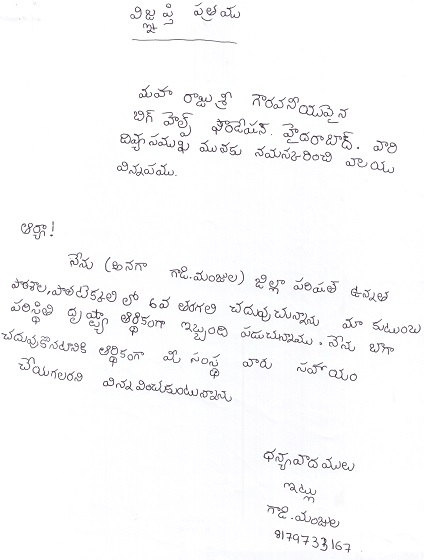 విజ్ఞప్తి పత్రము
మహా రాజు శ్రీ గౌరవనీయులైన
బిగ్ హెల్ప్ ఫౌండేషన్. హైదరాబాద్. వారి
దివ్యసముఖ మునకు నమస్కరించి వ్రాయు
విన్నపము.
ఆర్యా!
నేను (అనగా గాడి.మంజుల) జిల్లా పరిషత్ ఉన్నత
పాఠశాల, పాతటెక్కలి లో 6వ తరగతి చదువుచున్నాను మా కుటుంబ
పరిస్థితి దృష్ట్యా ఆర్థికంగా ఇబ్బంది పడుచున్నాము, నేను బాగా
చదువుకొనటానికి ఆర్థికంగా మీ సంస్థ వారు సహాయం
చేయగలరని విన్నవించుకుంటున్నాను
ధన్యవాదములు
ఇట్లు
గాడి.మంజుల
8179733167